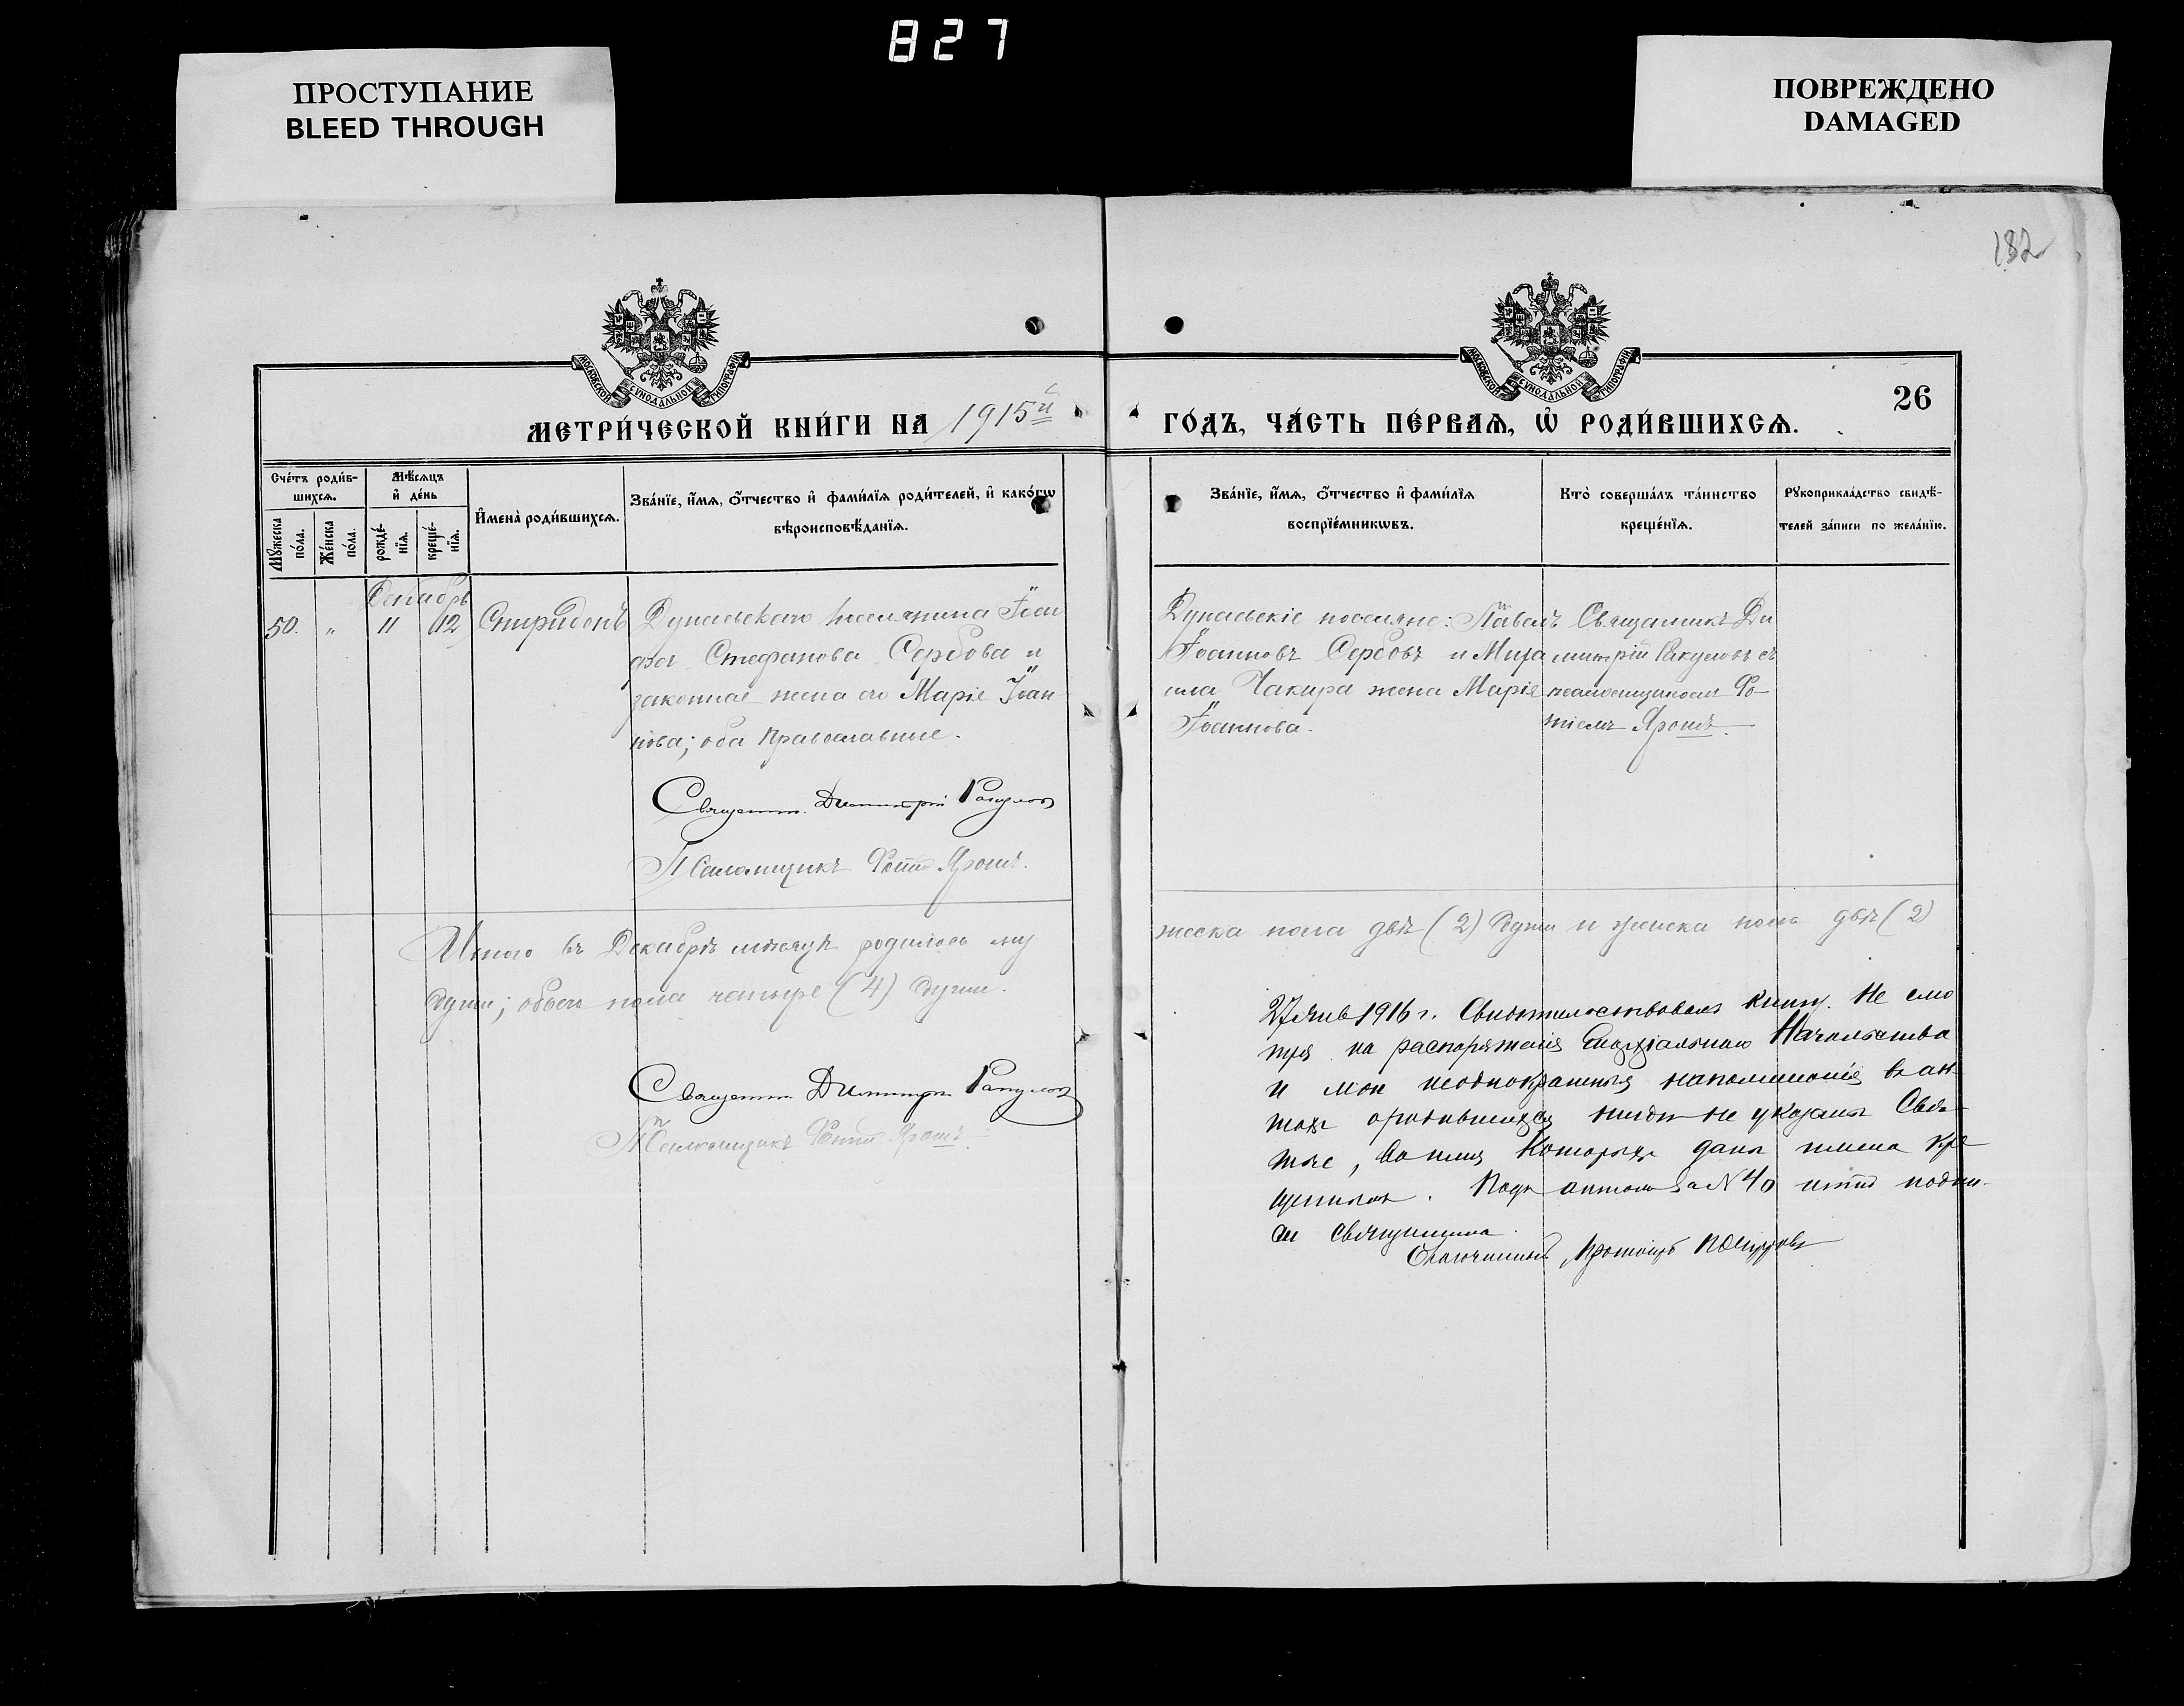 827
ПРОСТУПАНИЕ
BLEED THROUGH
ПОВРЕЖДЕНО
DAMAGED
182
МОСКОВСКОЙ СѴНОДАЛЬНОЙ ТИПОГРАФІИ
МОСКОВСКОЙ СѴНОДАЛЬНОЙ ТИПОГРАФІИ
26
МЕТРИ́ЧЕСКОЙ КНИ́ГИ НА 1915й
ГО́ДЪ, ЧА́СТЬ ПЕ́РВАѦ, Ѡ҆ РОДИ́ВШИХСѦ.
Сче́тъ роди́в-
шихсѧ.
Мѣ́сѧцъ
и҆ де́нь
Мꙋ́жеска
по́ла.
Же́нска
по́ла.
рожде́-
нїѧ.
креще́-
нїѧ.
И҆мена̀ роди́вшихсѧ.
Зва́нїе, и҆́мѧ, ѻ҆́тчество и҆ фами́лїѧ роди́телей, и҆ како́гѡ
вѣроисповѣ́данїѧ.
Зва́нїе, и҆́мѧ, ѻ҆́тчество и҆ фами́лїѧ
воспрїе́мникѡвъ.
Кто̀ соверша́лъ та́инство
креще́нїѧ.
Рꙋкоприкла́дство свидѣ́-
телей за́писи по жела́нїю.
Декабрь
50. " 11 12 Спиридонъ
Дунаевскаго поселянина Іоан
Стефанова Сербова и
законная жена его Марія Іоан
нова; оба православные.
Священн. Димитрій Ракулов
Псаломщикъ Фотій Ярошъ.
Дунаевскіе поселяне: Павелъ
Іоанновъ Сербовъ и Миха
ила Чакира жена Марія
Іоаннова.
Священникъ Ди
митрій Ракуловъ съ
псаломщикомъ Фо-
тіемъ Ярошъ.
Итого въ Декабрѣ мѣсяцѣ родилось му
жеска пола двѣ (2) души и женска пола двѣ (2)
души; обоего пола четыре (4) души.
Священн. Димитрій Ракулов
Псаломщикъ Фотій Ярошъ.
27 Янв 1916 г. Свидѣтельствовалъ книгу. Не смо
тря на распоряженія Епархіальнаго Начальства
и мои неоднократныя напоминанія въ ак
тахъ о родившихся нигдѣ не указаны Свя
тые, во имя Которыхъ даны имена кре
щенымъ. Подъ актомъ за № 40 нѣтъ подпи-
си священника.
Благочинный, Протоіер